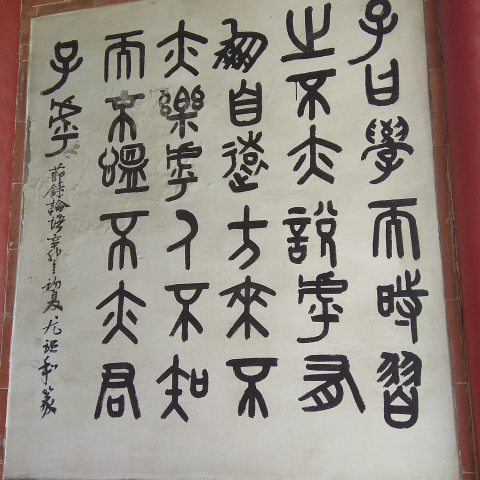 子曰學而時習
之不亦說乎有
朋自遠方來不
亦樂乎人不知
而不慍不亦君
子乎
節錄論語辛卯初夏篆